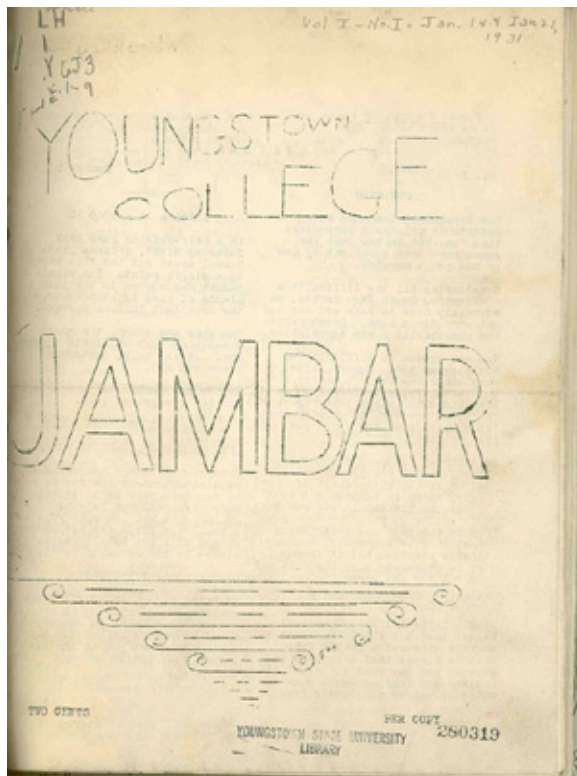 LH
1
Y6J3
v.1-9
Vol I - No. I - Jan.
1931
YOUNGSTOWN
COLLEGE
JAMBAR
TWO CENTS
PER COPY
YOUNGSTOWN STATE UNIVERSITY
LIBRARY
280319